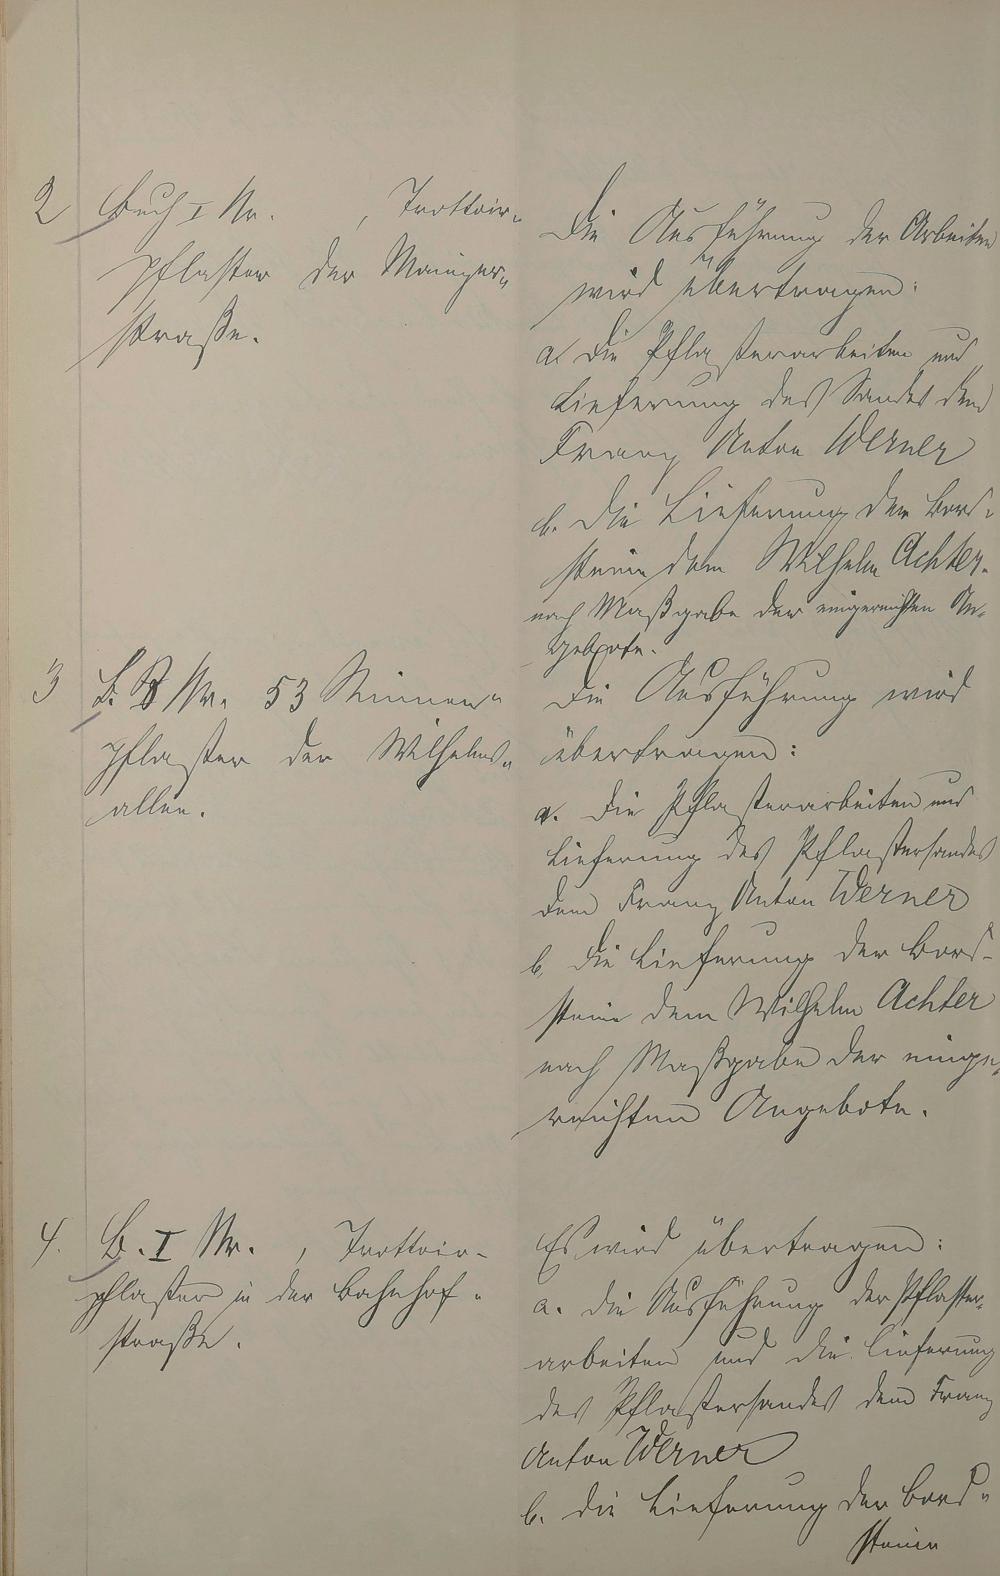 2 Buch I Nr. , Trottoir-
pflaster der Mainzer-
straße.
Die Ausführung der Arbeiten
wird übertragen:
a. die Pflasterarbeiten und
Lieferung des Sandes dem
Franz Anton Werner
b. die Lieferung der Bord-
steine dem Wilhelm Achter.
nach Maßgabe der eingereichten An-
gebote.
3 B. Nr. 53 Rinnen-
pflaster der Wilhelms-
allee.
Die Ausführung wird
übertragen:
a. die Pflasterarbeiten und
Lieferung des Pflastersandes
dem Franz Anton Werner
b. die Lieferung der Bord-
steine dem Wilhelm Achter
nach Maßgabe der einge-
reichten Angebote.
4. B. I Nr. , Trottoir-
pflaster in der Bahnhof-
straße.
Es wird übertragen:
a. die Ausführung der Pflaster-
arbeiten und die Lieferung
des Pflastersandes dem Franz
Anton Werner
b. die Lieferung der Bord-
steine